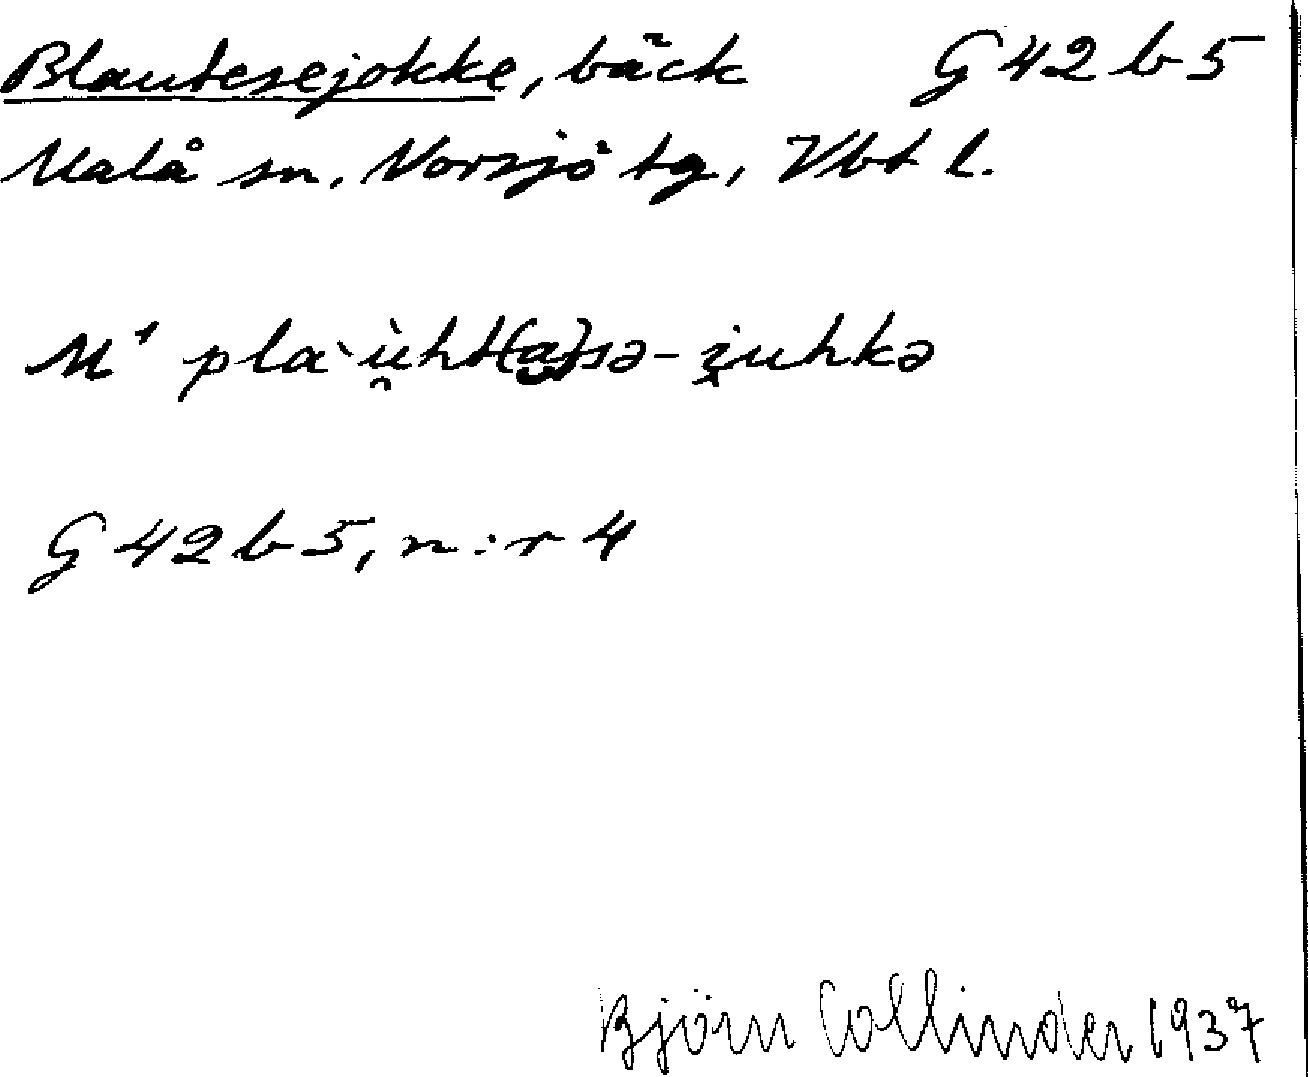 Blautesejokke, bäck G 42 b 5
Malå sn. Norsjö tg, Vbt l.
M¹ pla`ù̯ht(a)sə-i̯uhkə
G 42 b 5, n:r 4
Björn Collinder 1937